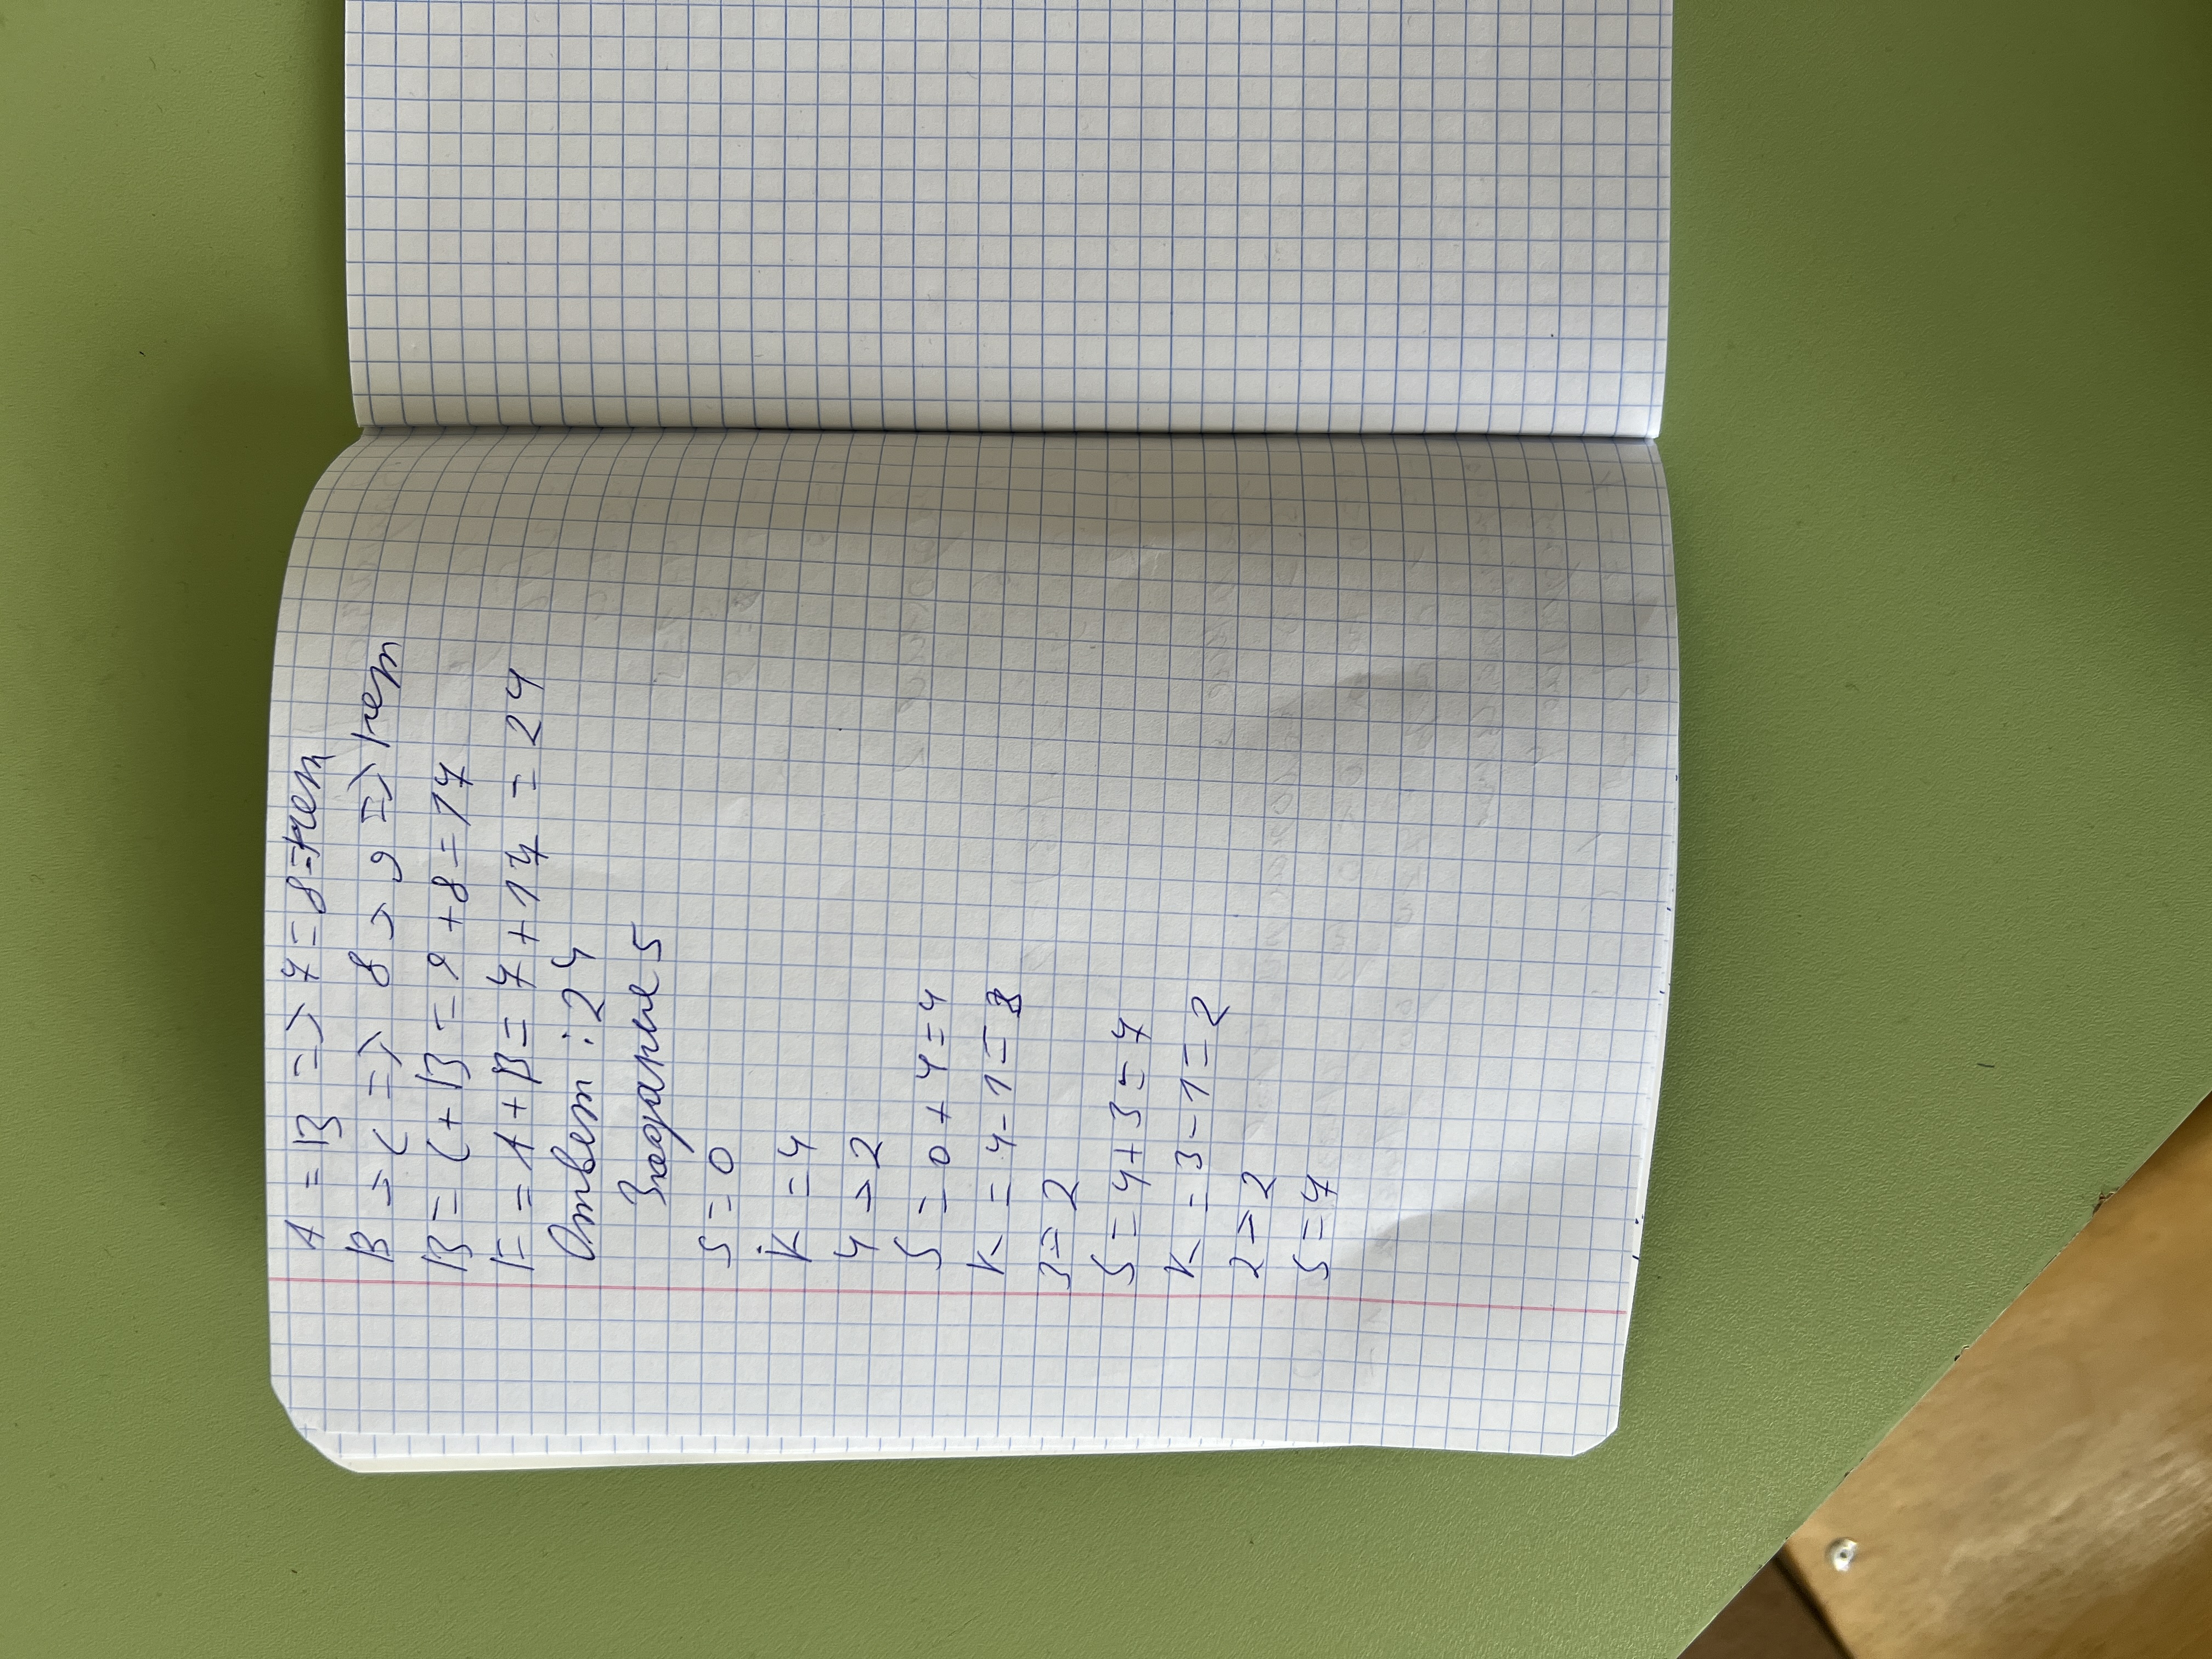 A = B => 7 = 8 = нет
B > C => 8 > 9 => нет
B = C + B = 9 + 8 = 17
F = A + B = 7 + 17 = 24
Ответ : 24
Задание 5
S = 0
K = 4
4 > 2
S = 0 + 4 = 4
K = 4 - 1 = 3
3 > 2
S = 4 + 3 = 7
K = 3 - 1 = 2
2 > 2
S = 7